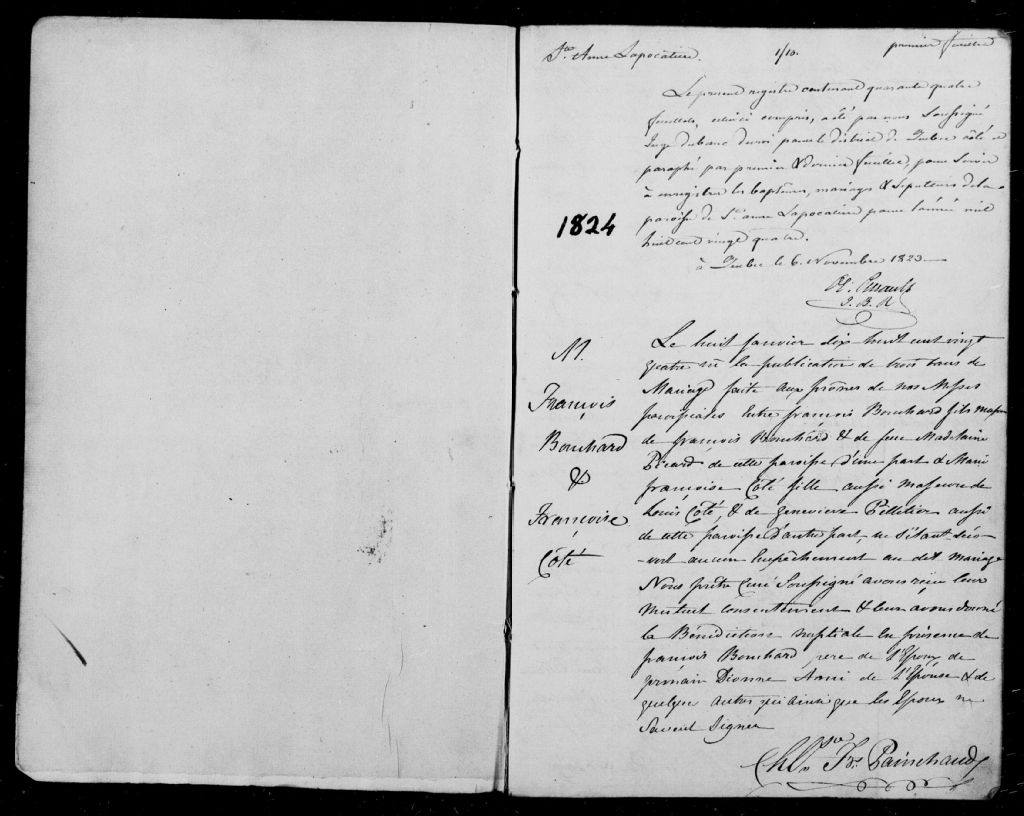 Ste Anne Lapocatiere. 1/10. premier feuillet
Le present registre contenant quarante quatre
feuillets, celui ci compris, a été par nous Soussigné
Juge du banc du roi pour le district de Quebec côté et
paraphé par premier & dernier feuillet, pour servir
à enregistrer les baptêmes, mariages & sepultures de la
paroisse de Ste anne Lapocatiere pour l'année mil
huit cent vingt quatre.
à Quebec le 6. Novembre 1823
J. B. R
1824
M.
François
Bouchard
&
Françoise
Côté
Le huit Janvier dix huit cent vingt
quatre vû la publication de trois bans de
Mariage faite aux prônes de nos Messes
paroissiales Entre françois Bouchard fils majeur
de françois Bouchard & de feue Madelaine
Picard de cette paroisse d'une part & Marie
françoise Côté fille aussi majeure de
Louis Côté, & de Genevieve Pelletier aussi
de cette paroisse d'autre part, ne s'étant décou-
-vert aucun Empêchement au dit mariage
Nous prêtre Curé Soussigné avons reçu leur
mutuel consentement & leur avons donné
la Bénédiction nuptiale En présence de
françois Bouchard, pere de l'Epoux de
germain Dionne Ami de l'Epouse & de
quelques autres qui ainsi que les Epoux ne
Savent Signer
Chs Frs Painchaud